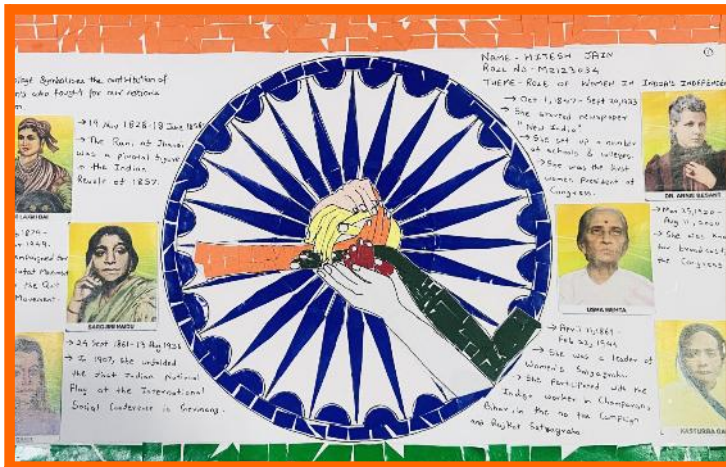 Symbolises the contribution of
who fought for our
→ 19 Nov 1828 - 18 June 1858
→ The Rani of Jhansi
was a pivotal figure
in the Indian
Revolt of 1857.
1879 -
1949.
the Quit
Movement.
SAROJINI NAIDU
→ 24 Sept 1861 - 13 Aug 1936
→ In 1907, she unfolded
the first Indian National
Flag at the International
Social Conference in Germany.
NAME - HITESH JAIN
ROLL NO - M2123034
THEME - ROLE OF WOMEN IN INDIA'S
→ Oct 1, 1847 - Sept 20, 1933
→ She started newspaper
"New India"
→ She set up a number
of schools & colleges.
→ She was the first
women President of
Congress.
DR. ANNIE BESANT
→ Mar 25, 1920 -
Aug 11, 2000
→ She was
for broadcast
the Congress
USHA MEHTA
→ April 11, 1869 -
Feb 22, 1944
→ She was a leader of
Women's Satyagraha
→ She Participated with the
Indigo worker in Champaran,
Bihar in the no tax Campaign
and Rajkot Satyagraha.
KASTURBA